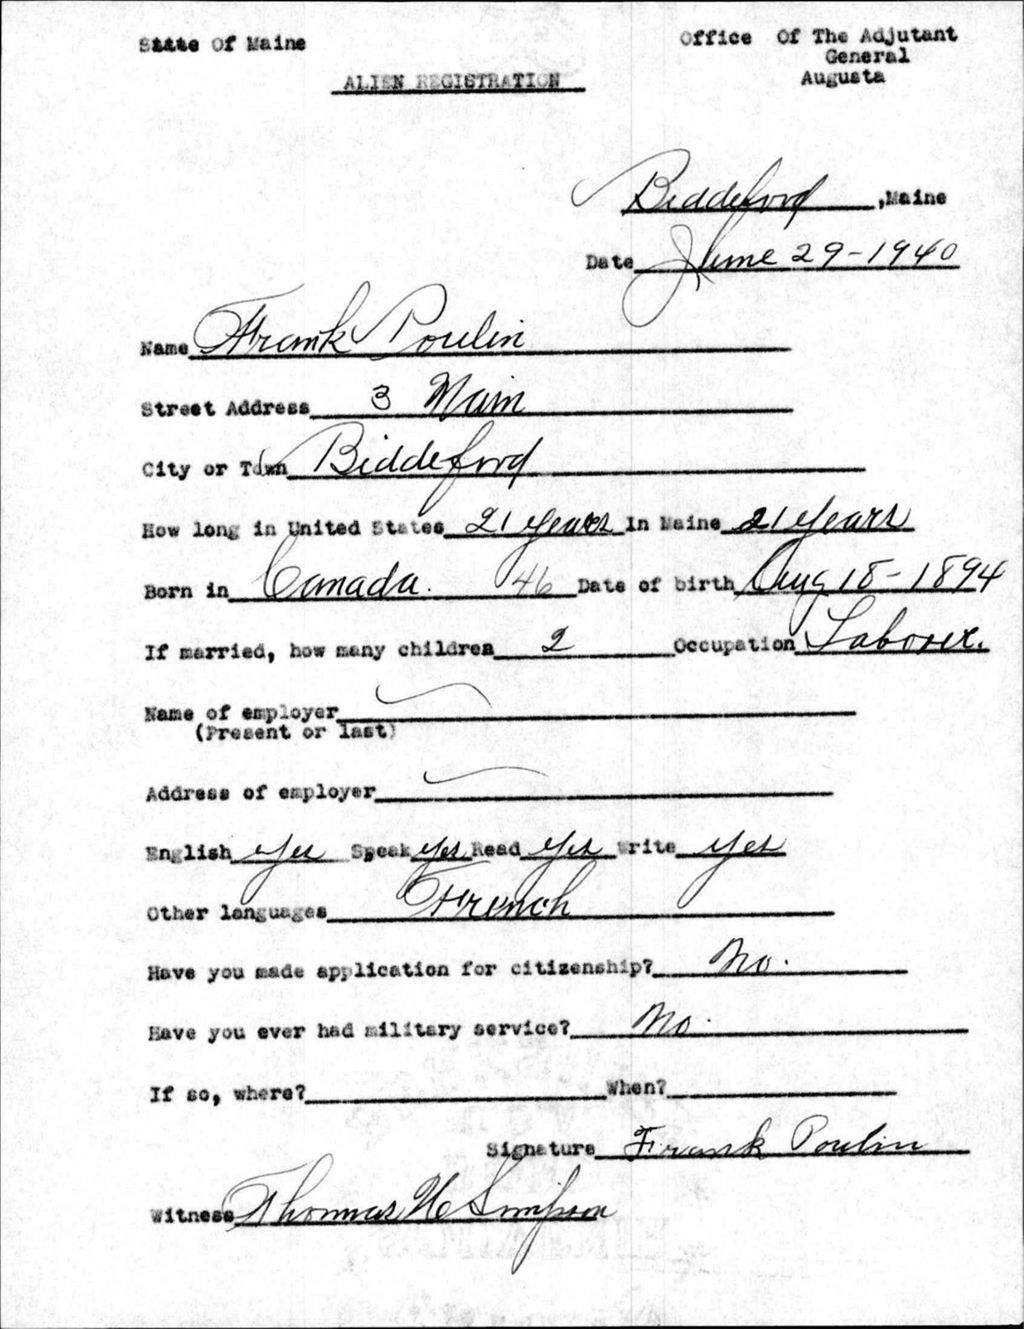 State Of Maine
Office Of The Adjutant
General
Augusta
ALIEN REGISTRATION
Biddeford, Maine
Date June 29-1940
Name Frank Poulin
Street Address 3 Main
City or Town Biddeford
How long in United States 21 years In Maine 21 years
Born in Canada. 46 Date of birth Aug 18-1894
If married, how many children 2 Occupation Laborer.
Name of employer
(Present or last)
Address of employer
English Yes Speak Yes Read Yes Write Yes
Other languages French
Have you made application for citizenship? No.
Have you ever had military service? No.
If so, where? When?
Signature Frank Poulin
Witness Thomas H Simpson